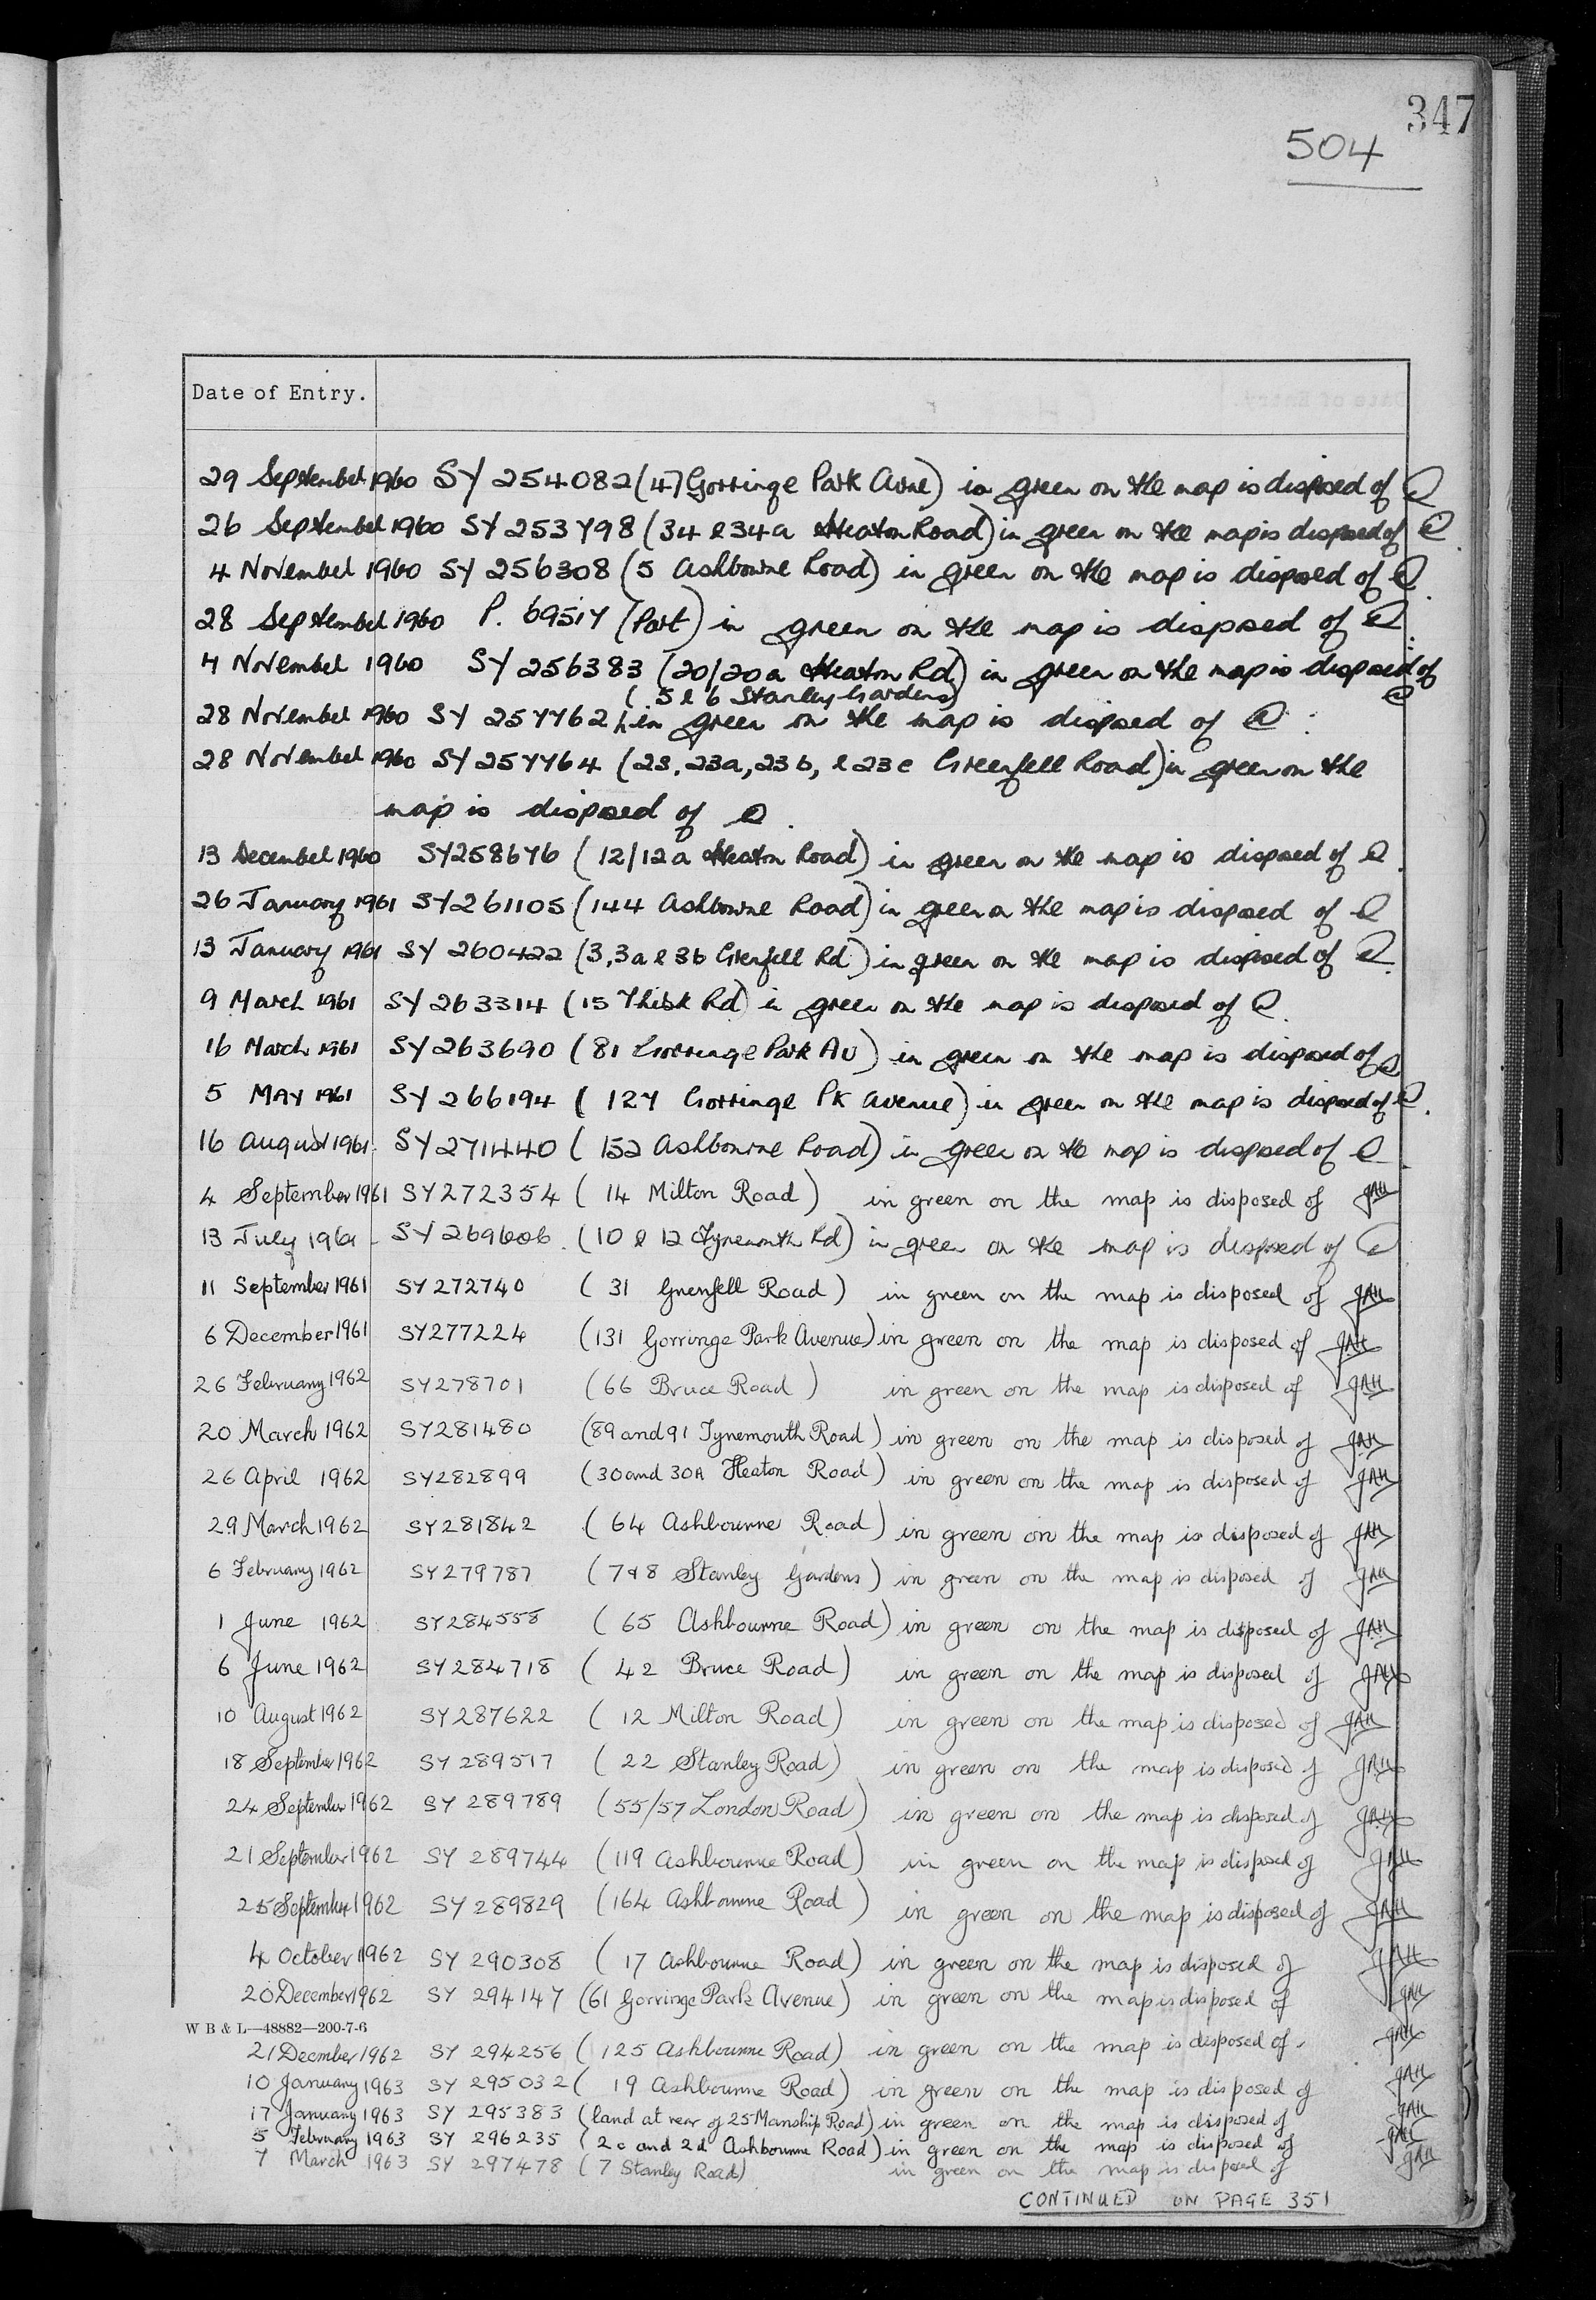 347
504
Date of Entry.
29 September 1960 SY 254082 (47 Gorringe Park Avne) in green on the map is disposed of
26 September 1960 SY 253798 (34 & 34a Heaton Road) in green on the map is disposed of
4 November 1960 SY 256308 (5 Ashbourne Road) in green on the map is disposed of
28 September 1960 P. 69517 (Part) in green on the map is disposed of
4 November 1960 SY 256383 (20/20a Heaton Rd) in green on the map is disposed of
(5 & 6 Stanley Gardens)
28 November 1960 SY 257762 in green on the map is disposed of
28 November 1960 SY 257764 (23, 23a, 23b, & 23c Greenfell Road) in green on the
map is disposed of
13 December 1960 SY258676 (12/12a Heaton Road) in green on the map is disposed of
26 January 1961 SY261105 (144 Ashbourne Road) in green on the map is disposed of
13 January 1961 SY 260422 (3, 3a & 3b Grenfell Rd) in green on the map is disposed of
9 March 1961 SY 263314 (15 Thirsk Rd) in green on the map is disposed of
16 March 1961 SY 263690 (81 Gorringe Park Av) in green on the map is disposed of
5 MAY 1961 SY 266194 (127 Gorringe Pk Avenue) in green on the map is disposed of
16 August 1961 SY 271440 (152 Ashbourne Road) in green on the map is disposed of
4 September 1961 SY 272354 (14 Milton Road) in green on the map is disposed of JAH
13 July 1961 SY 269606 (10 & 12 Tynemouth Rd) in green on the map is disposed of
11 September 1961 SY 272740 (31 Grenfell Road) in green on the map is disposed of JAH
6 December 1961 SY277224 (131 Gorringe Park Avenue) in green on the map is disposed of JAH
26 February 1962 SY278701 (66 Bruce Road) in green on the map is disposed of JAH
20 March 1962 SY281480 (89 and 91 Tynemouth Road) in green on the map is disposed of JAH
26 April 1962 SY282899 (30 and 30A Heaton Road) in green on the map is disposed of JAH
29 March 1962 SY281842 (64 Ashbourne Road) in green on the map is disposed of JAH
6 February 1962 SY279787 (7 & 8 Stanley Gardens) in green on the map is disposed of JAH
1 June 1962 SY284558 (65 Ashbourne Road) in green on the map is disposed of JAH
6 June 1962 SY284718 (42 Bruce Road) in green on the map is disposed of JAH
10 August 1962 SY287622 (12 Milton Road) in green on the map is disposed of JAH
18 September 1962 SY 289517 (22 Stanley Road) in green on the map is disposed of JAH
24 September 1962 SY 289789 (55/57 London Road) in green on the map is disposed of JAH
21 September 1962 SY 289744 (119 Ashbourne Road) in green on the map is disposed of JAH
25 September 1962 SY 289829 (164 Ashbourne Road) in green on the map is disposed of JAH
4 October 1962 SY 290308 (17 Ashbourne Road) in green on the map is disposed of JAH
20 December 1962 SY 294147 (61 Gorringe Park Avenue) in green on the map is disposed of JAH
W B & L—48882—200-7-6
21 December 1962 SY 294256 (125 Ashbourne Road) in green on the map is disposed of. JAH
10 January 1963 SY 295032 (19 Ashbourne Road) in green on the map is disposed of JAH
17 January 1963 SY 295383 (land at rear of 25 Manship Road) in green on the map is disposed of JAH
5 February 1963 SY 296235 (2c and 2d Ashbourne Road) in green on the map is disposed of JAH
7 March 1963 SY 297478 (7 Stanley Road) in green on the map is disposed of JAH
CONTINUED ON PAGE 351